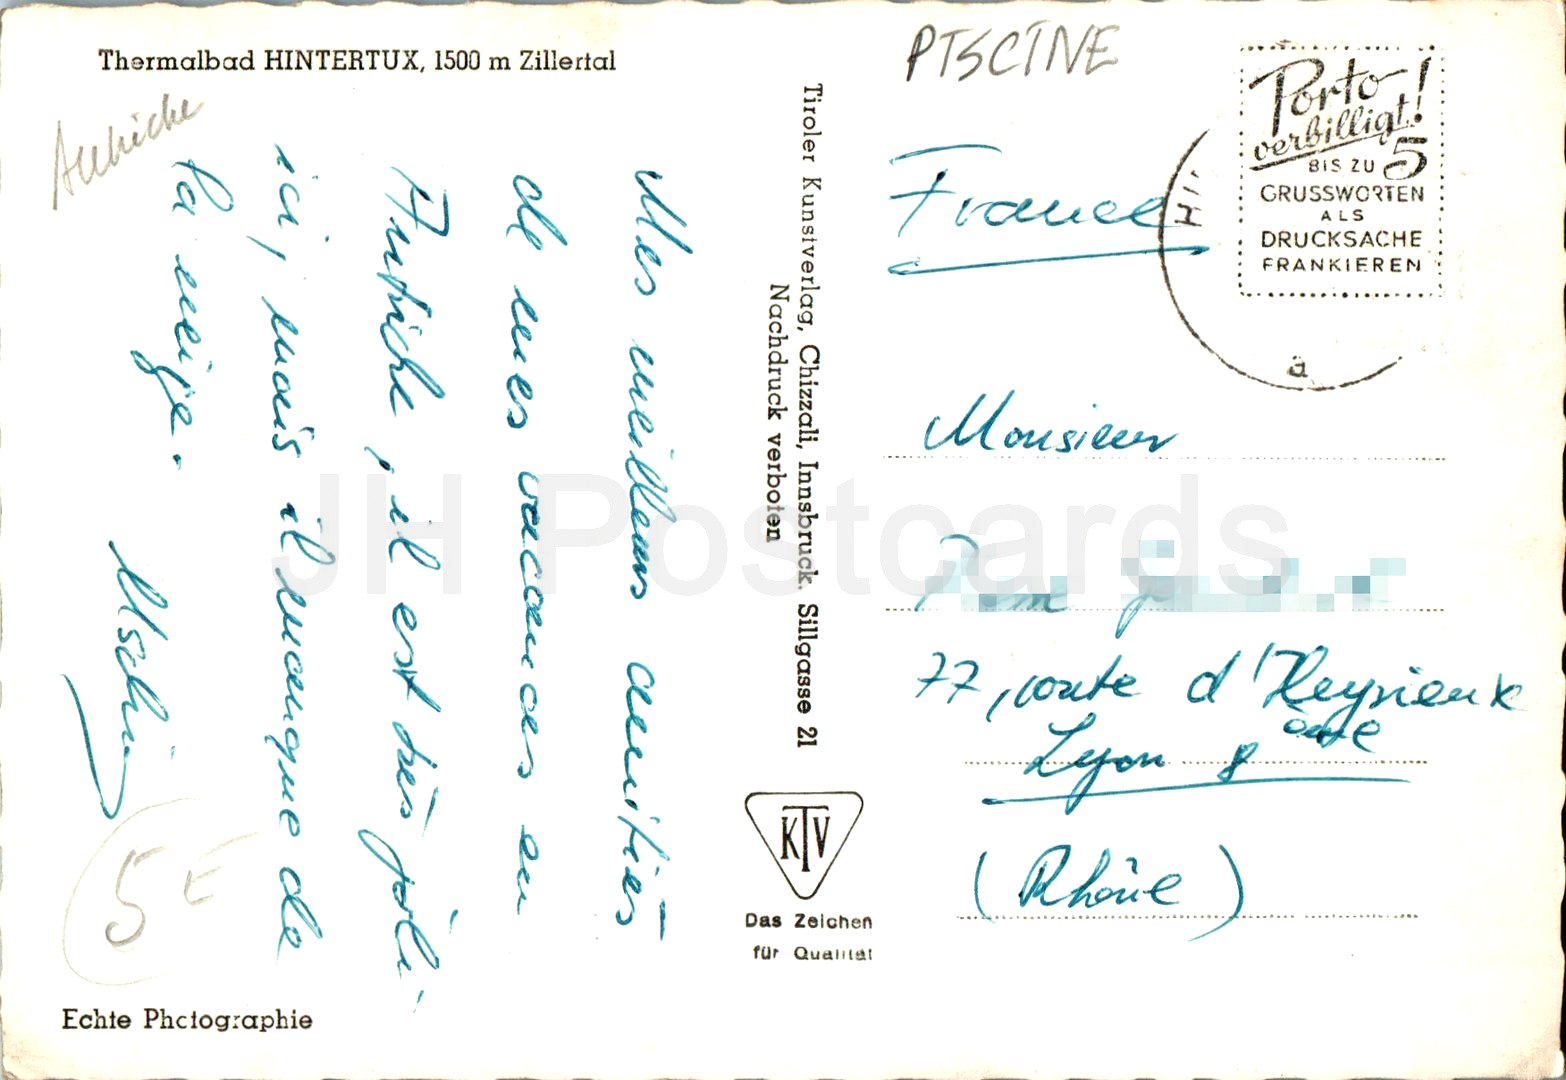 Thermalbad HINTERTUX, 1500 m Zillertal
Autriche
Mes meilleurs amitiés
de mes vacances en
Autriche, il est très joli
ici, mais il manque de
la neige.
5 E
Echte Photographie
Tiroler Kunstverlag, Chizzali, Innsbruck. Sillgasse 21
Nachdruck verboten
KTV
Das Zeichen
für Qualität
PISCINE
Porto
verbilligt!
BIS ZU 5
GRUSSWORTEN
ALS
DRUCKSACHE
FRANKIEREN
a
France
Monsieur
77, route d'Heyrieux
Lyon 8ème
(Rhône)
JH Postcards